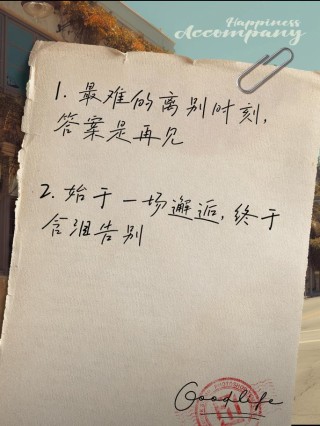 Happiness
Accompany
1. 最难的离别时刻,
答案是再见
2. 始于一场邂逅, 终于
含泪告别
Goodlife